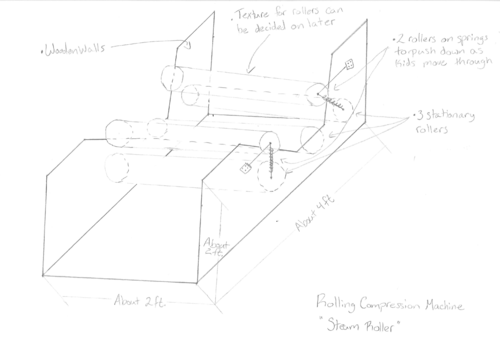 • Texture for rollers can
be decided on later
• Wooden Walls
• 2 rollers on springs
to push down as
kids move through
• 3 stationary
rollers
About
2ft
About 4ft
About 2ft
Rolling Compression Machine
"Steam Roller"